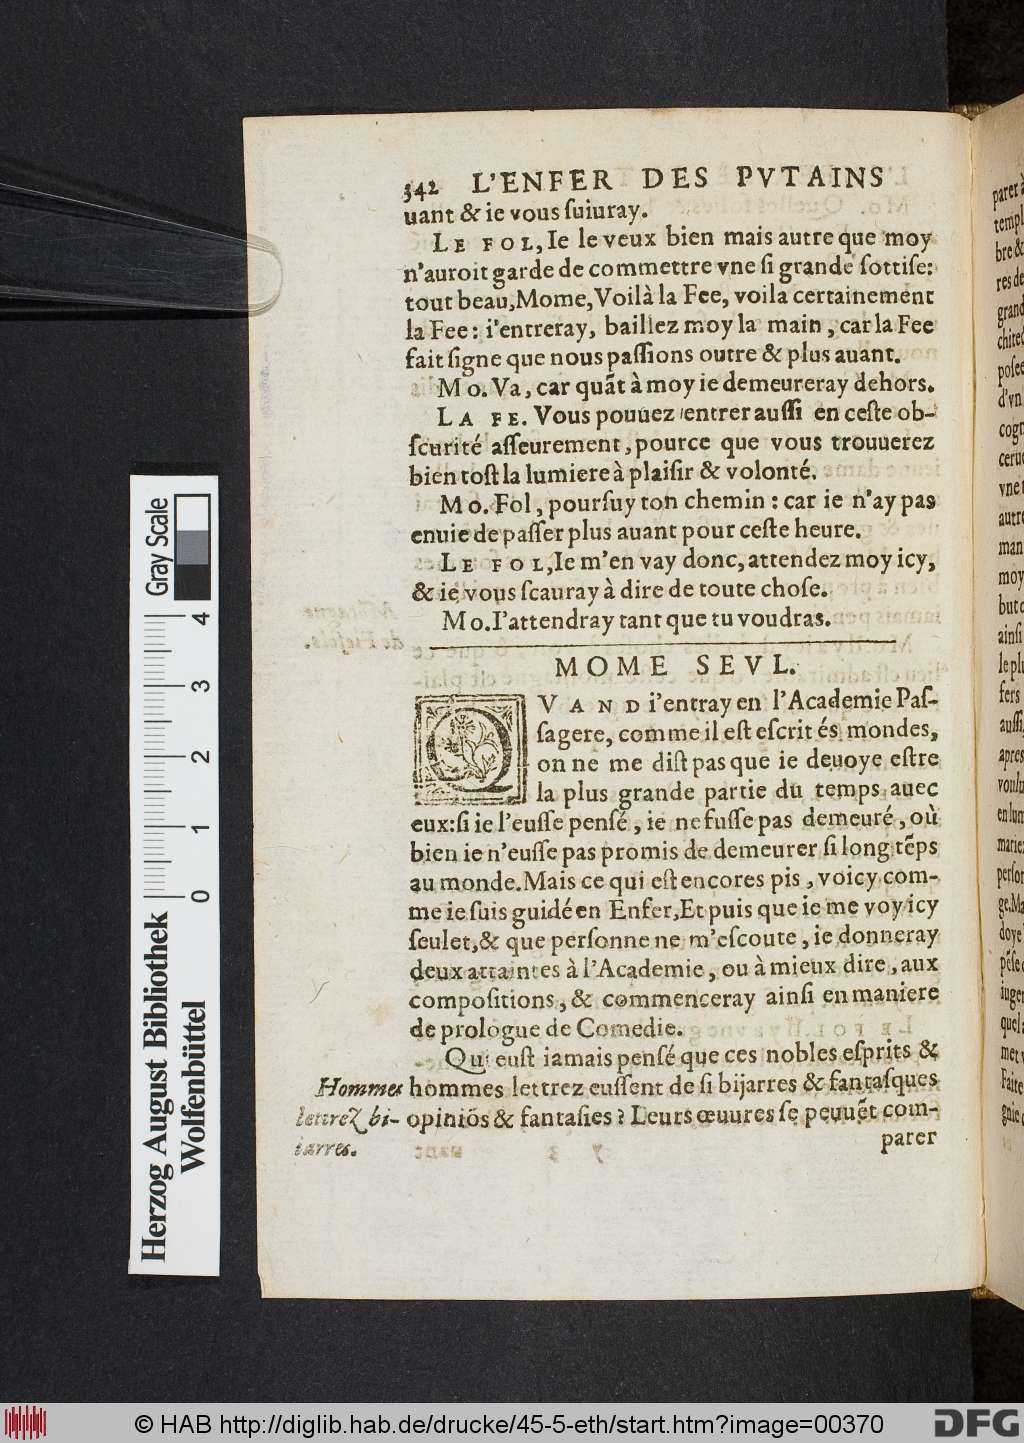 342 L'ENFER DES PVTAINS
uant & ie vous ſuiuray.
LE FOL, Ie le veux bien mais autre que moy
n'auroit garde de commettre vne ſi grande ſottiſe:
tout beau, Mome, Voilà la Fee, voila certainement
la Fee: i'entreray, baillez moy la main, car la Fee
fait ſigne que nous paſſions outre & plus auant.
Mo. Va, car quãt à moy ie demeureray dehors.
LA FE. Vous pouuez entrer auſſi en ceſte ob-
ſcurité aſſeurement, pource que vous trouuerez
bien toſt la lumiere à plaiſir & volonté.
Mo. Fol, pourſuy ton chemin: car ie n'ay pas
enuie de paſſer plus auant pour ceſte heure.
LE FOL, Ie m'en vay donc, attendez moy icy,
& ie vous ſcauray à dire de toute choſe.
Mo. I'attendray tant que tu voudras.
MOME SEVL.
QVAND i'entray en l'Academie Paſ-
ſagere, comme il eſt eſcrit és mondes,
on ne me diſt pas que ie deuoye eſtre
la plus grande partie du temps auec
eux: ſi ie l'euſſe penſé, ie ne fuſſe pas demeuré, où
bien ie n'euſſe pas promis de demeurer ſi long tẽps
au monde. Mais ce qui eſt encores pis, voicy com-
me ie ſuis guidé en Enfer, Et puis que ie me voy icy
ſeulet, & que perſonne ne m'eſcoute, ie donneray
deux attaintes à l'Academie, ou à mieux dire, aux
compoſitions, & commenceray ainſi en maniere
de prologue de Comedie.
Qui euſt iamais penſé que ces nobles eſprits &
hommes lettrez euſſent de ſi bijarres & fantaſques
opiniõs & fantaſies? Leurs œuures ſe peuuẽt com-
parer
Hommes
lettrez bi-
iarres.
parer à
templ
bre &
res de
grand
chitec
poſee
d'vn
cogn
cerue
vne t
autre
man
moy
but c
ainſi
le pl
fers
auſſi,
apres
voulu
en lum
mariez
perſon
ge. Ma
doye
pẽſe
iuger
quel
met v
Faite
gnie
Gray Scale
0 1 2 3 4
Herzog August Bibliothek
Wolfenbüttel
© HAB http://diglib.hab.de/drucke/45-5-eth/start.htm?image=00370
DFG